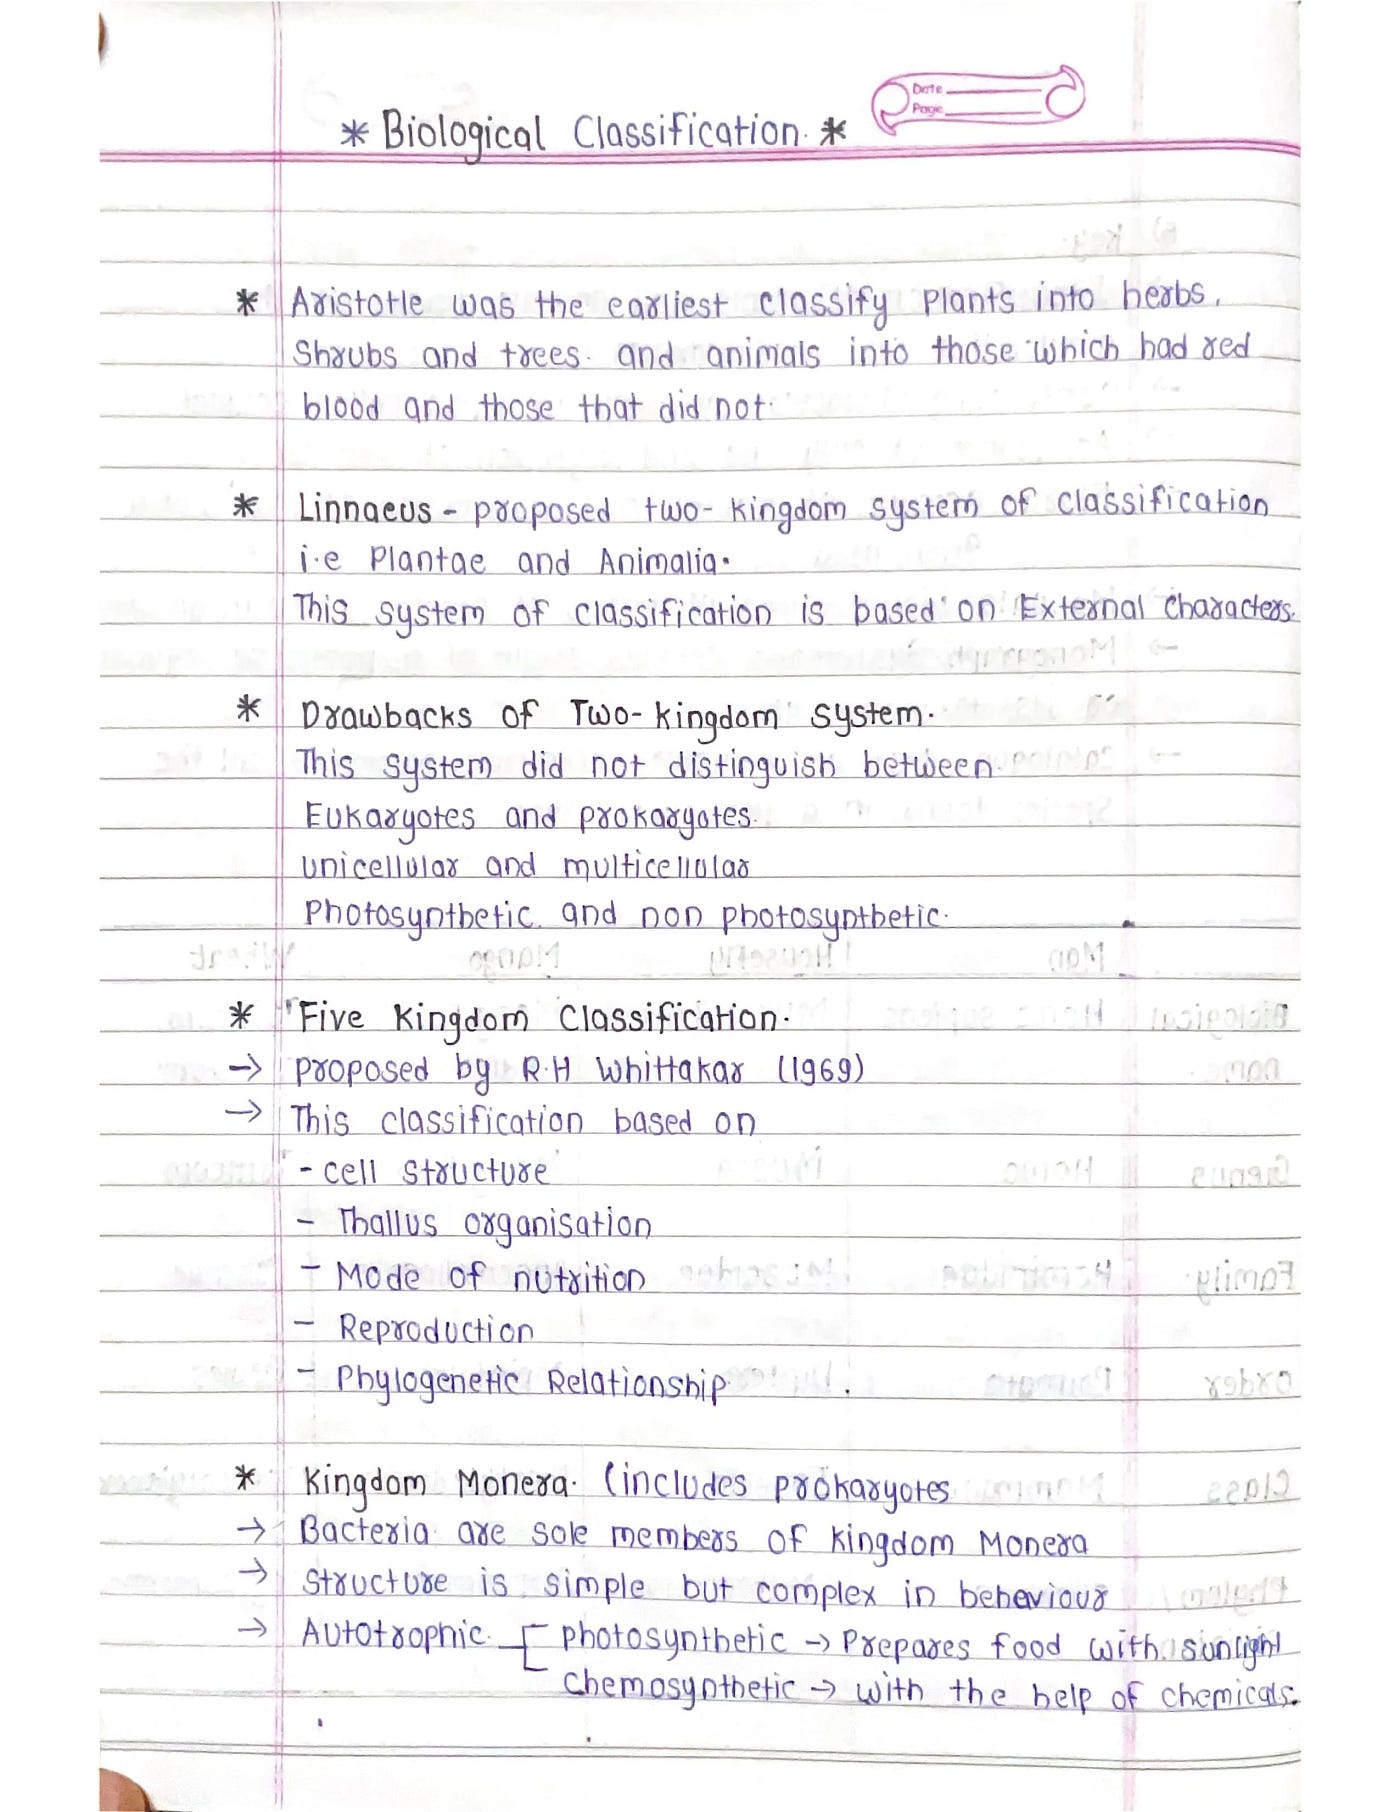 Date
Page
* Biological Classification. *
* Aristotle was the earliest classify Plants into herbs,
Shrubs and trees. and animals into those which had red
blood and those that did not.
* Linnaeus - proposed two-kingdom system of classification
i.e Plantae and Animalia.
This system of classification is based on External characters.
* Drawbacks of Two-kingdom system.
This system did not distinguish between.
Eukaryotes and prokaryotes.
unicellular and multicellular
Photosynthetic and non photosynthetic.
* Five Kingdom Classification.
→ proposed by R.H Whittakar (1969)
→ This classification based on
- cell structure
- Thallus organisation
- Mode of nutrition
- Reproduction
- Phylogenetic Relationship.
* Kingdom Monera. (includes prokaryotes
→ Bacteria are sole members of kingdom Monera
→ structure is simple but complex in beheviour
→ Autotrophic. photosynthetic → Prepares food with sunlight
Chemosynthetic → with the help of chemicals.